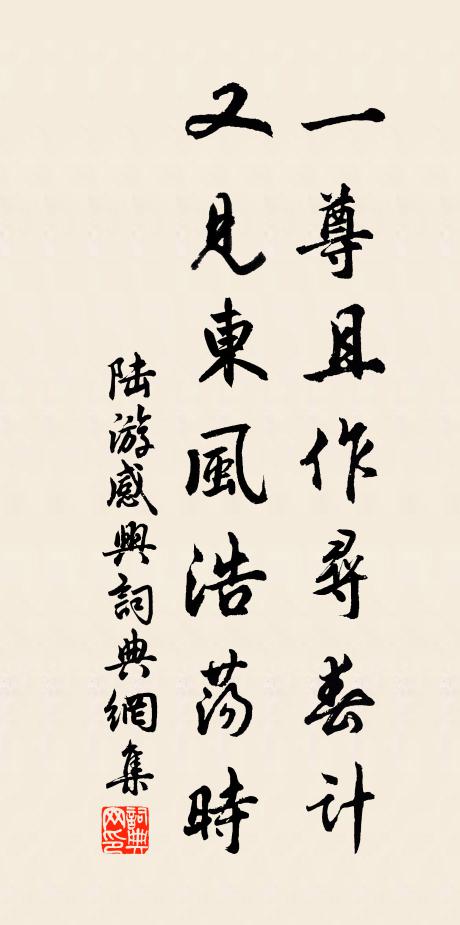 一尊且作尋春計
又見東風浩蕩時
陸游感興詞典網集
詞典網印